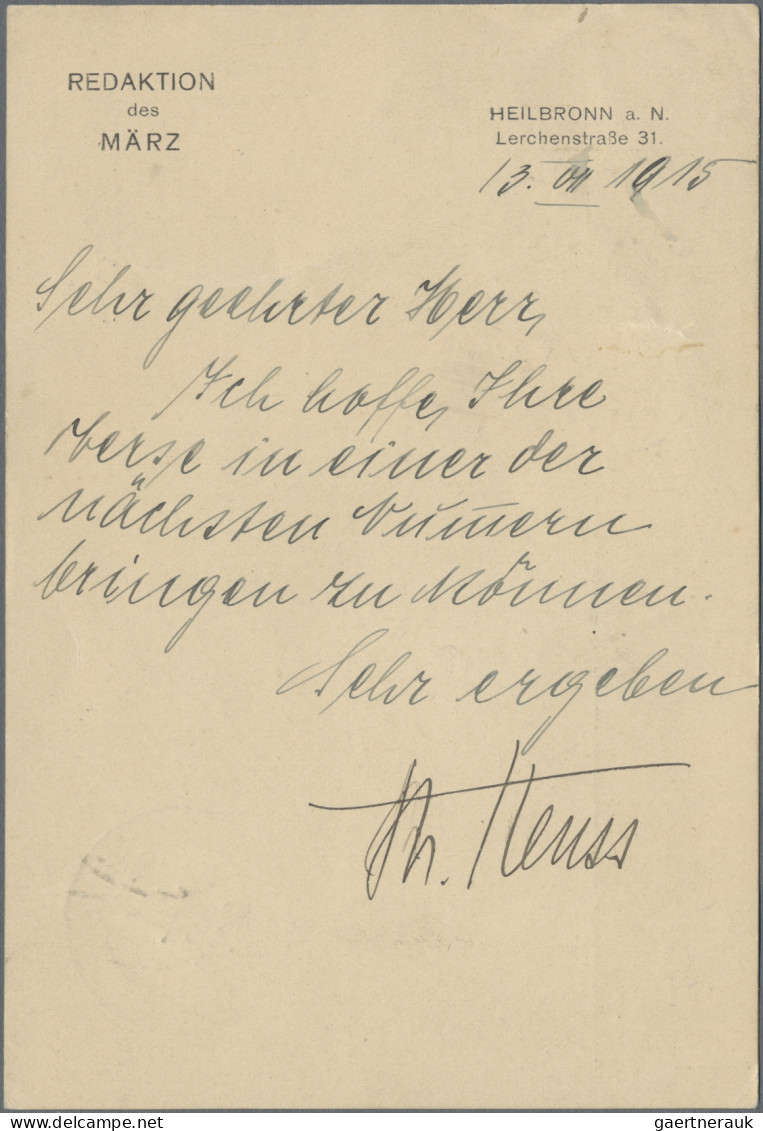 REDAKTION
des
MÄRZ
HEILBRONN a. N.
Lerchenstraße 31.
13. VII 1915
Sehr geehrter Herr,
Ich hoffe, Ihre
Verse in einer der
nächsten Num̅ern
bringen zu können.
Sehr ergeben
Th. Heuss
delcampe.net
gaertnerauk